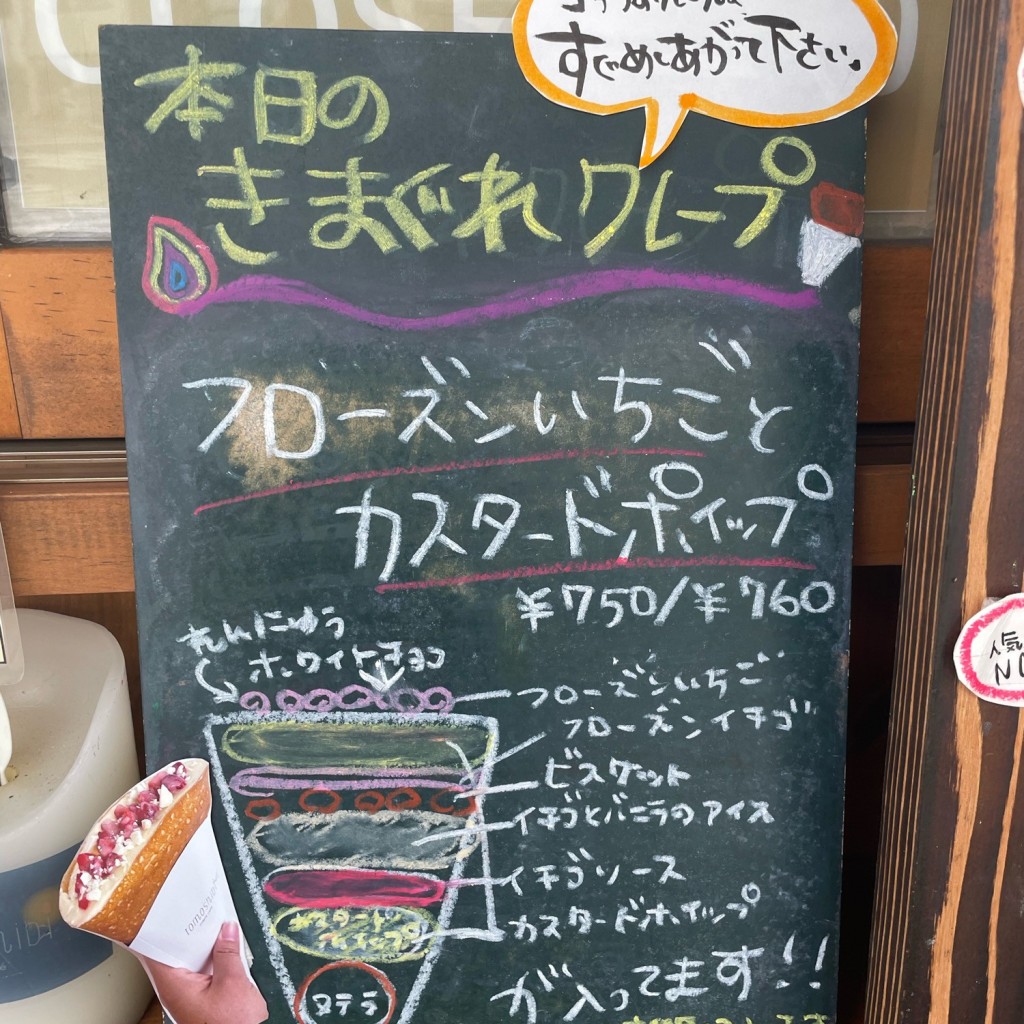 すぐめしあがって下さい。
本日の
きまぐれクレープ
フローズンいちごと
カスタードホイップ
¥750/¥760
れんにゅう
ホワイトチョコ
フローズンいちご
フローズンイチゴ
ビスケット
イチゴとバニラのアイス
イチゴソース
カスタードホイップ
カスタード
ホイップ
ヌテラ
が入ってます!!
人気